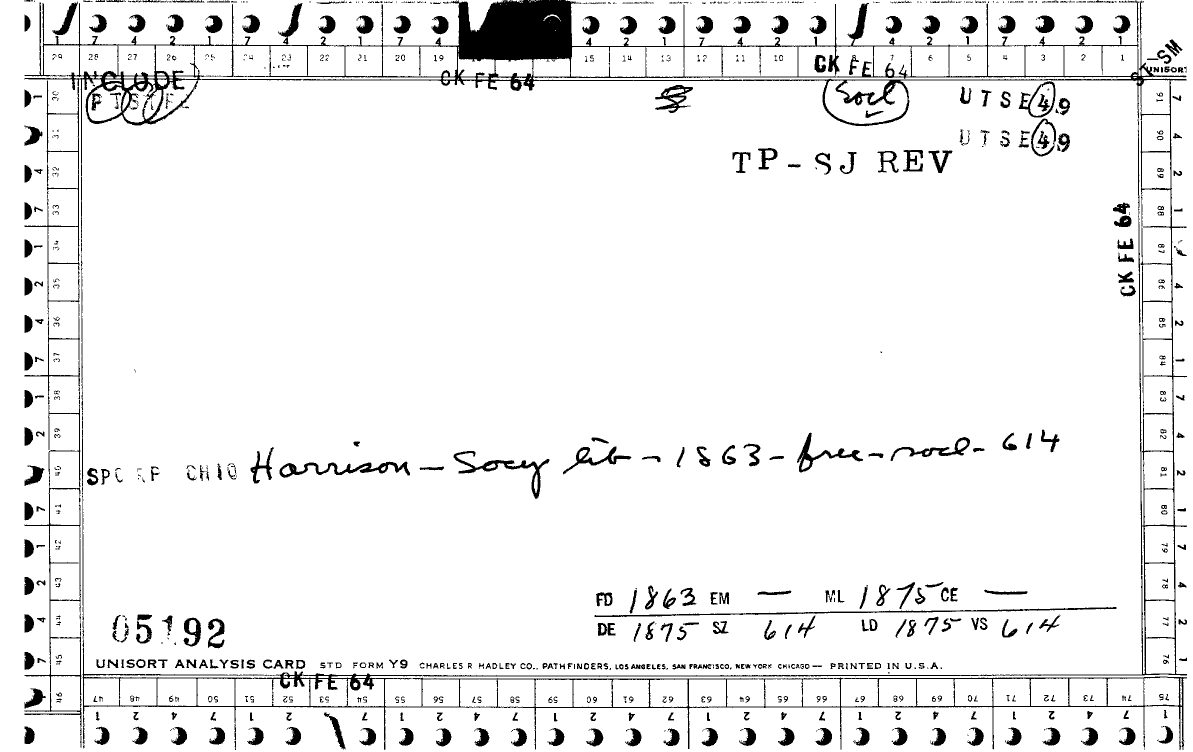 1 7 4 2 1 7 4 4 2 1 7 4 2 1 7 4 2 1 7 4 2 1
29 28 27 26 25 24 23 22 21 20 19 15 14 13 12 11 10 9 7 6 5 4 3 2 1
INCLUDE CK FE 64 CK FE 64 ST-SM
UNISORT
P T S T F E Socl UTSE 4.9
UTSE 49
TP-SJ REV
CK FE 64
30 31 32 33 34 35 36 37 38 39 40 41 42 43 44 45 46
91 90 89 88 87 86 85 84 83 82 81 80 79 78 77 76
SPC RP CH10 Harrison - Socy lib - 1863 - free - socl - 614
FD 1863 EM — ML 1875 CE —
DE 1875 SZ 614 LD 1875 VS 614
05192
UNISORT ANALYSIS CARD STD FORM Y9 CHARLES R HADLEY CO., PATHFINDERS, LOS ANGELES, SAN FRANCISCO, NEW YORK CHICAGO — PRINTED IN U.S.A.
CK FE 64
47 48 49 50 51 52 53 54 55 56 57 58 59 60 61 62 63 64 65 66 67 68 69 70 71 72 73 74 75
1 2 4 7 1 2 7 1 2 4 7 1 2 4 7 1 2 4 7 1 2 4 7 1 2 4 7 1